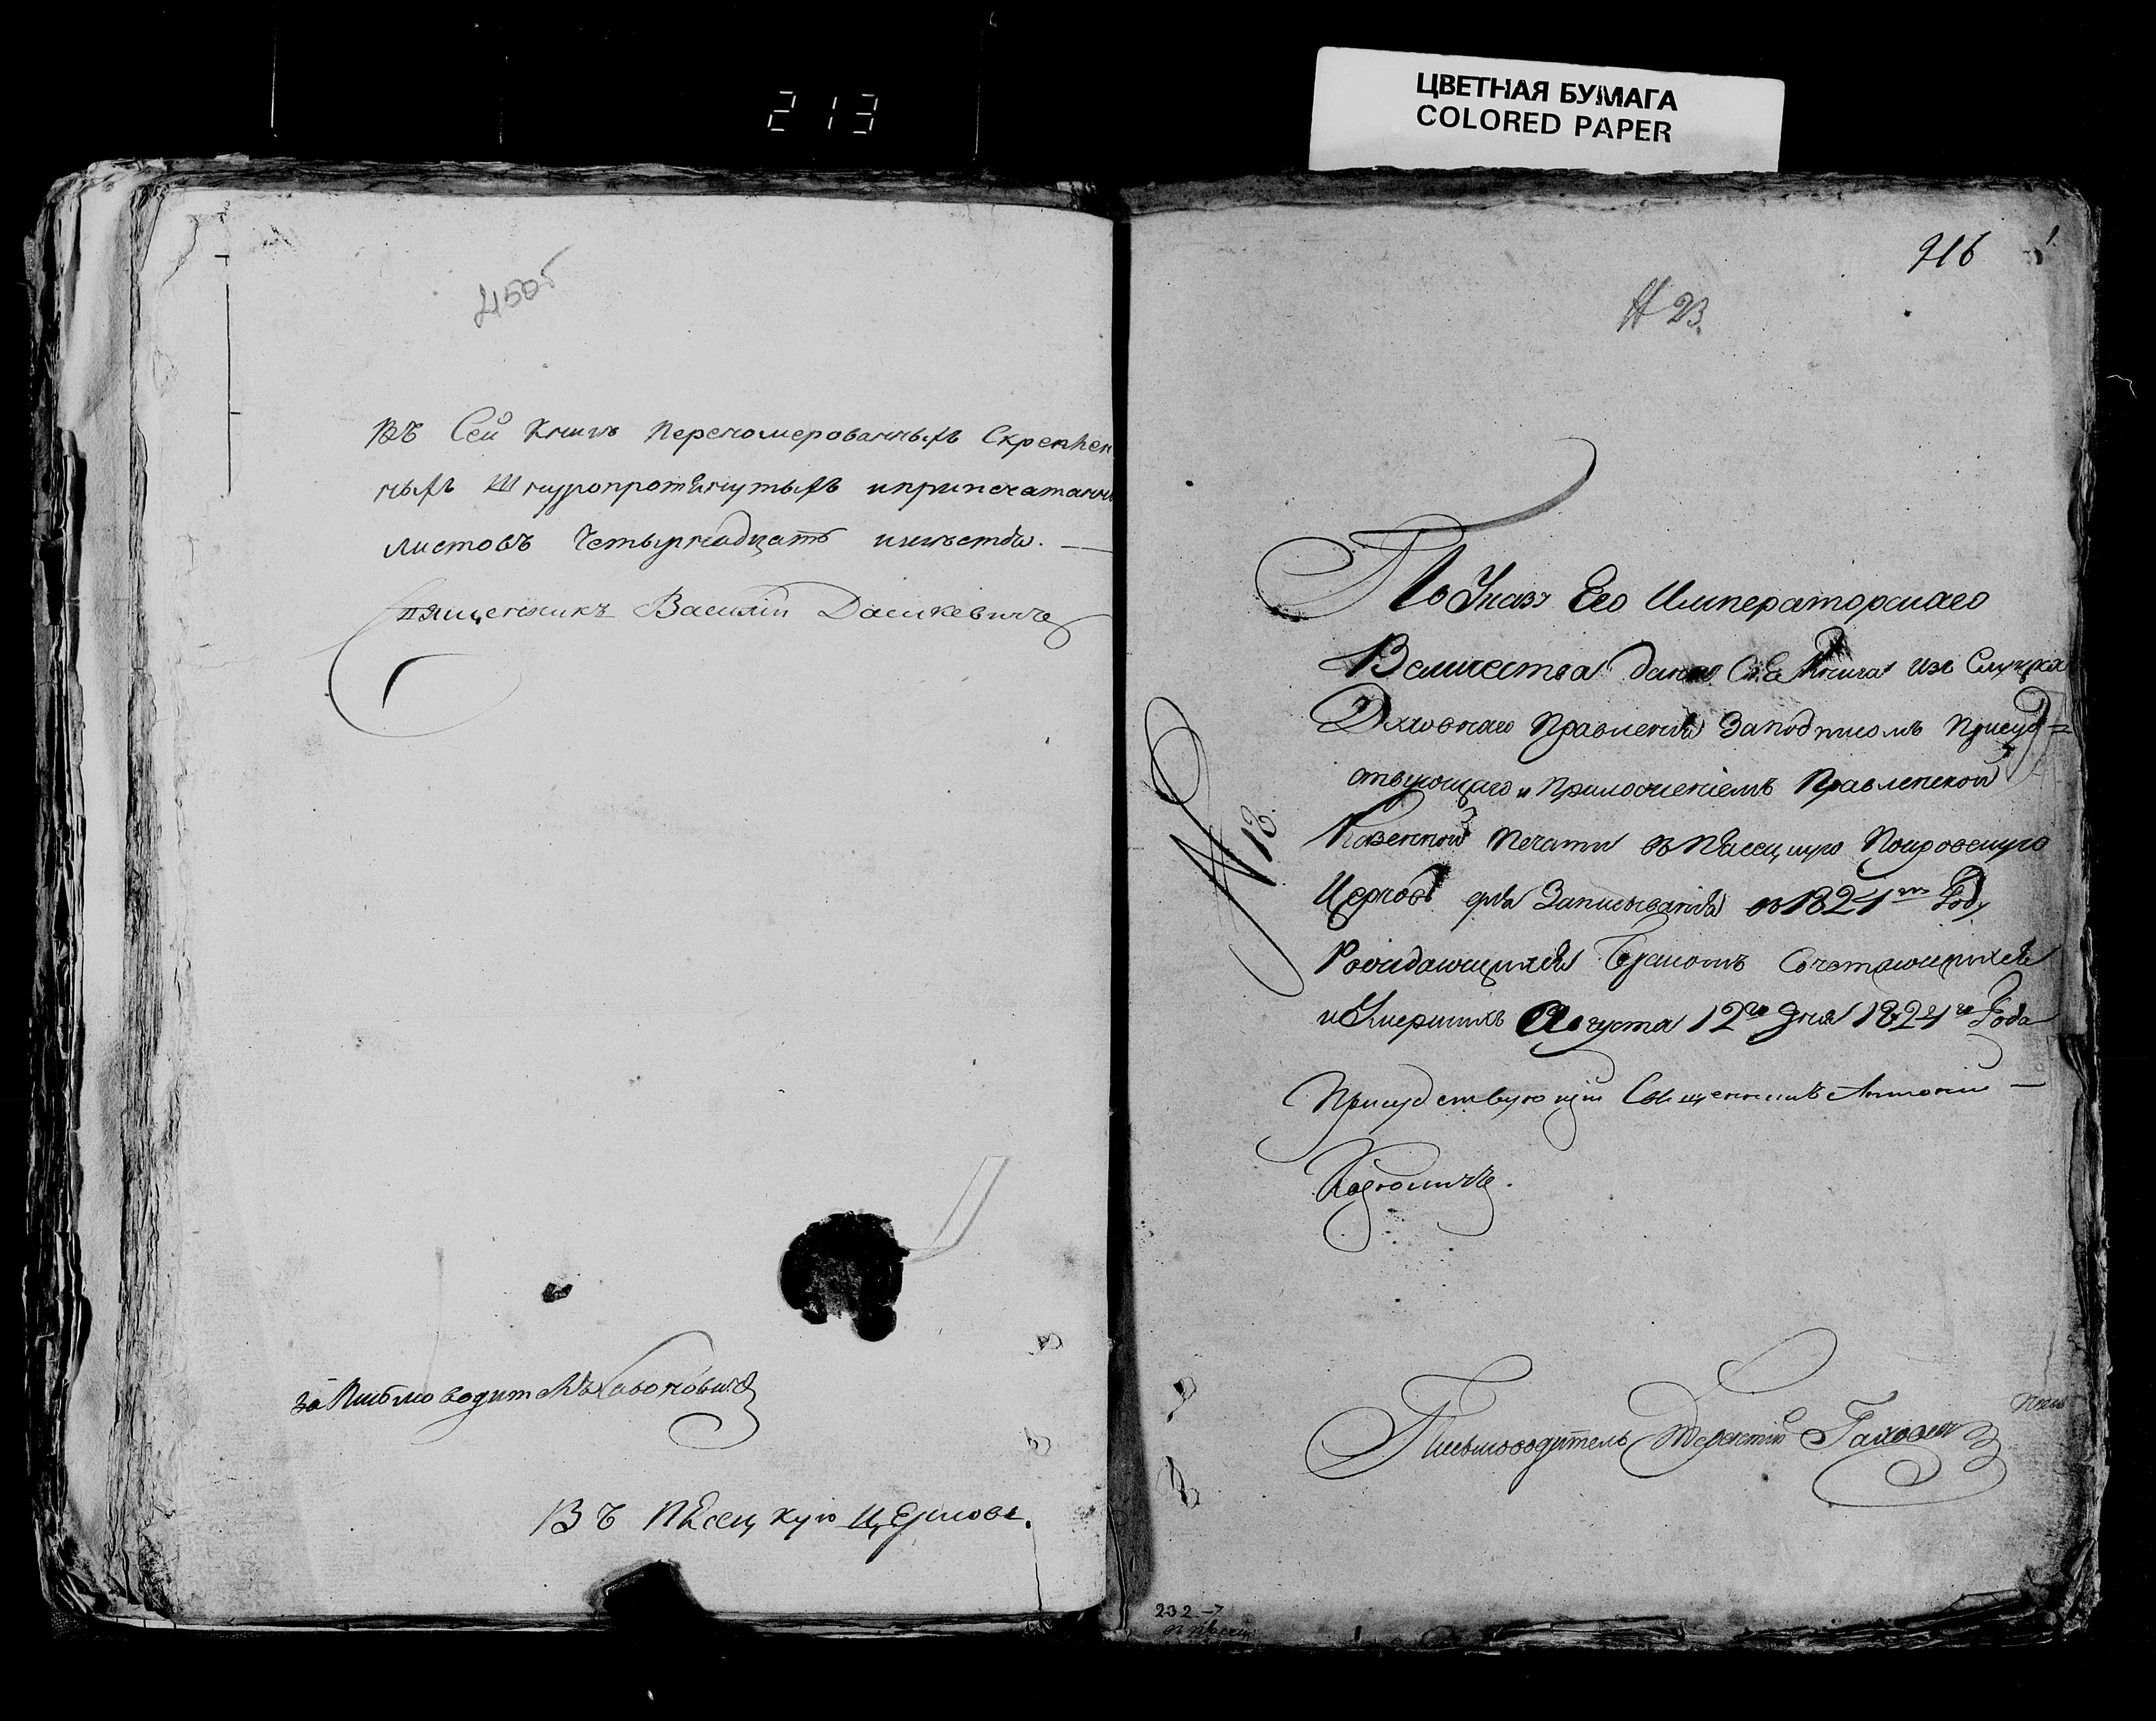 213
ЦВЕТНАЯ БУМАГА
COLORED PAPER
Въ Сей Книгѣ Переномерованныхъ Скрепнен
ныхъ Шнуропротянутыхъ иприпечатанн
листовъ Четырнадцать имѣется. —
Священникъ Василій Дашкевичъ
за Письмоводителъ
Въ Пѣсецкую Церковь.
916
№ 23.
По Указу Его Императорскаго
Величества дана Сія Книга изъ Слуцка
Духовнаго Правленія Заподписомъ Присуд=
ствующаго и Приложеніемъ Правленской
Казенной Печати въ Пѣсецкую Покровскую
Церковь для Записыванія въ 1821 Году
Рождающихся Бракомъ Сочетающихся
и Умершихъ Августа 12го дня 1821го Года
Присудствующій Священникъ Антоній —
№ 12.
Письмоводитель
232-7